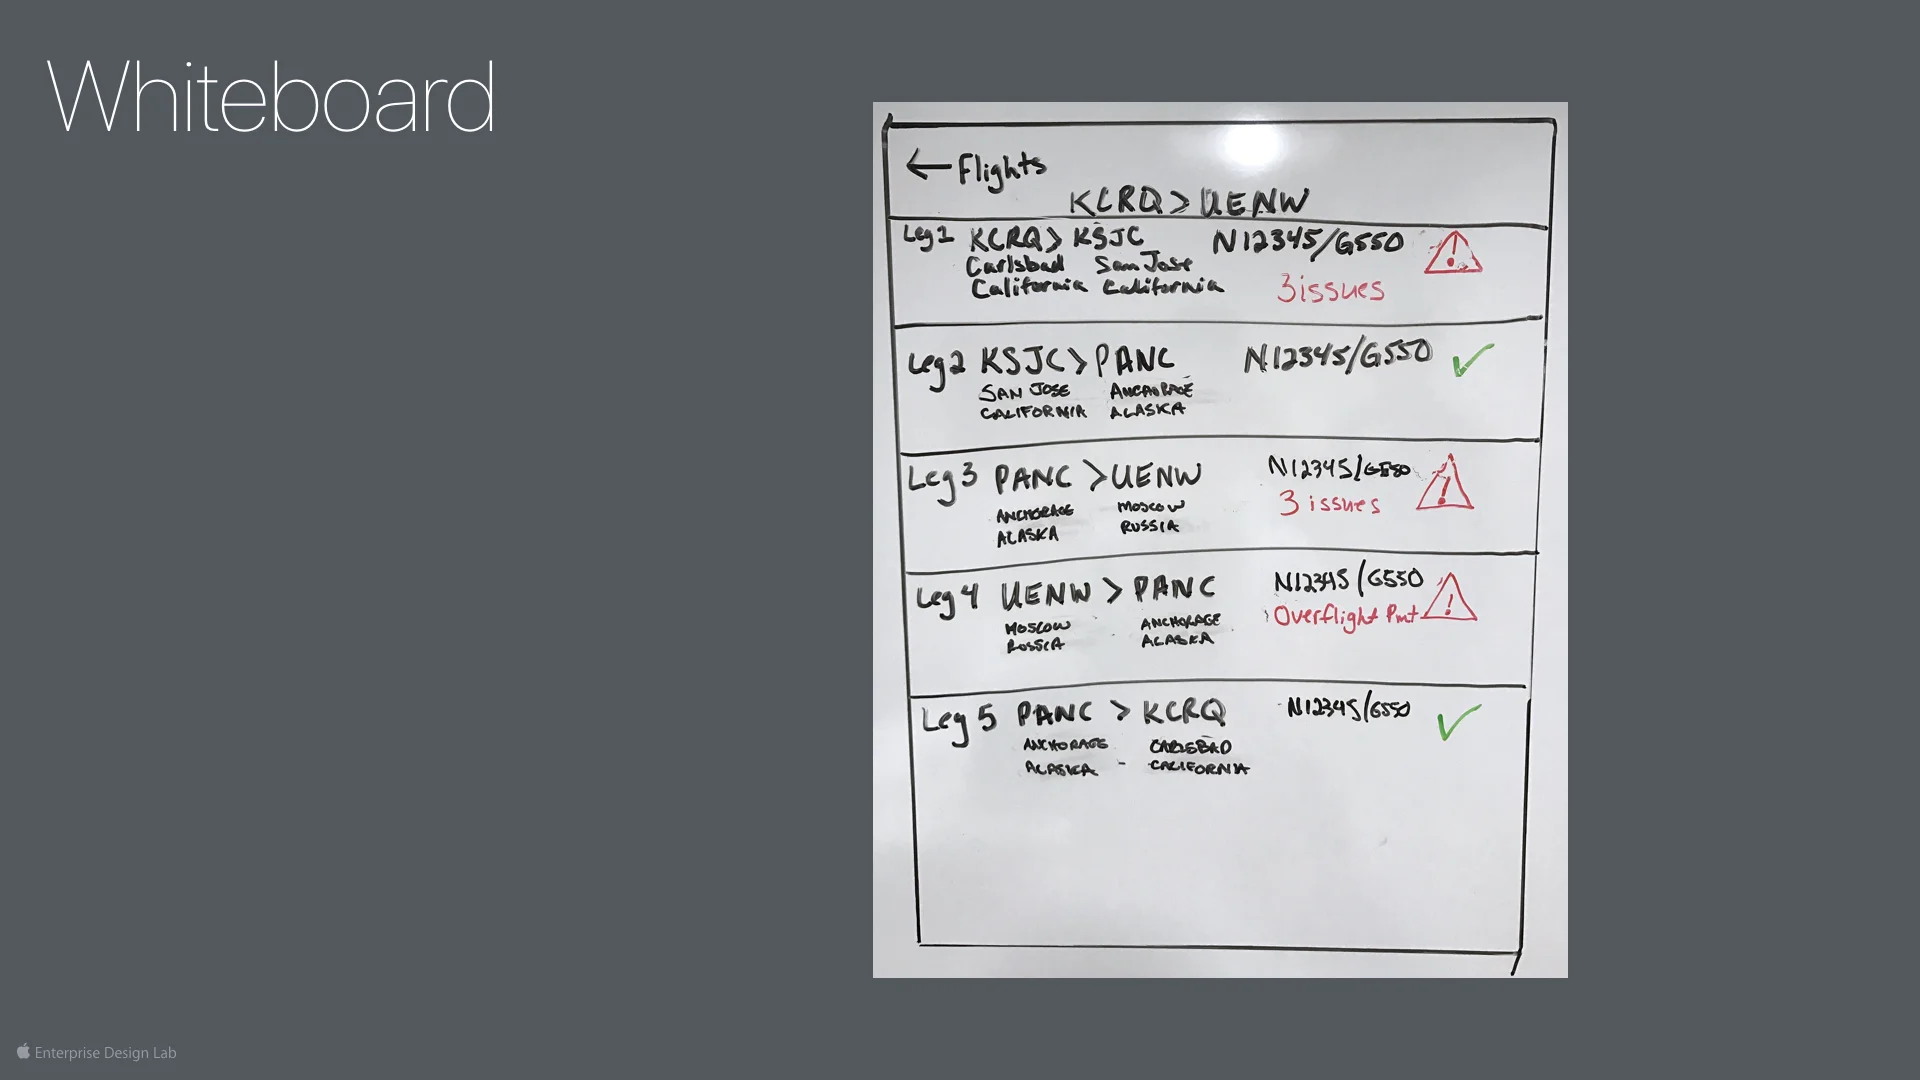 Whiteboard
← Flights
KCRQ > UENW
Leg 1 KCRQ > KSJC N12345/G550
Carlsbad San Jose
California California 3 issues
Leg 2 KSJC > PANC N12345/G550
SAN JOSE ANCHORAGE
CALIFORNIA ALASKA
Leg 3 PANC > UENW N12345/G550
ANCHORAGE MOSCOW 3 issues
ALASKA RUSSIA
Leg 4 UENW > PANC N12345/G550
Overflight Pmt
MOSCOW ANCHORAGE
RUSSIA ALASKA
Leg 5 PANC > KCRQ N12345/G550
ANCHORAGE CARLSBAD
ALASKA - CALIFORNIA
Enterprise Design Lab